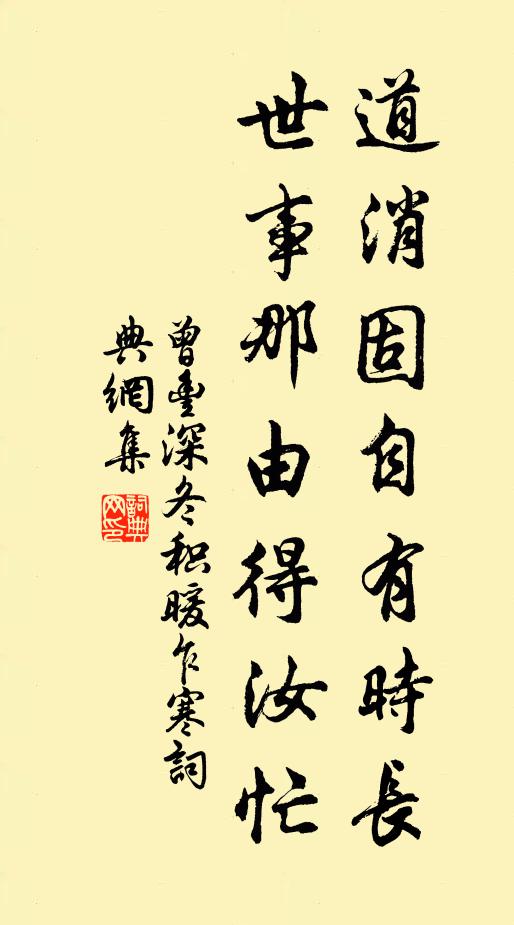 道消固自有時長
世事那由得汝忙
曾豊深冬积暖乍寒詞
典網集
詞典網印